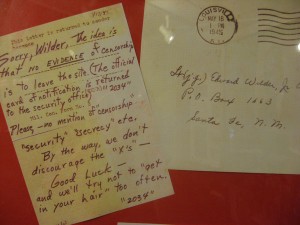 This letter is returned to sender
Sorry, Wilder, the idea is
that no EVIDENCE of censorship
is to leave the site (the official
card of notification is returned
to the security officer)
"2034"
Please, no mention of "censorship"
"security" "secrecy" etc.
By the way, we don't
discourage the "X's" –
Good Luck –
and we'll try not to "get
in your hair" too often.
"2034"
LOUISVILLE
MAY 18
1 PM
1945
Edward Wilder, Jr.
P.O. Box 1663
Santa Fe, N. M.